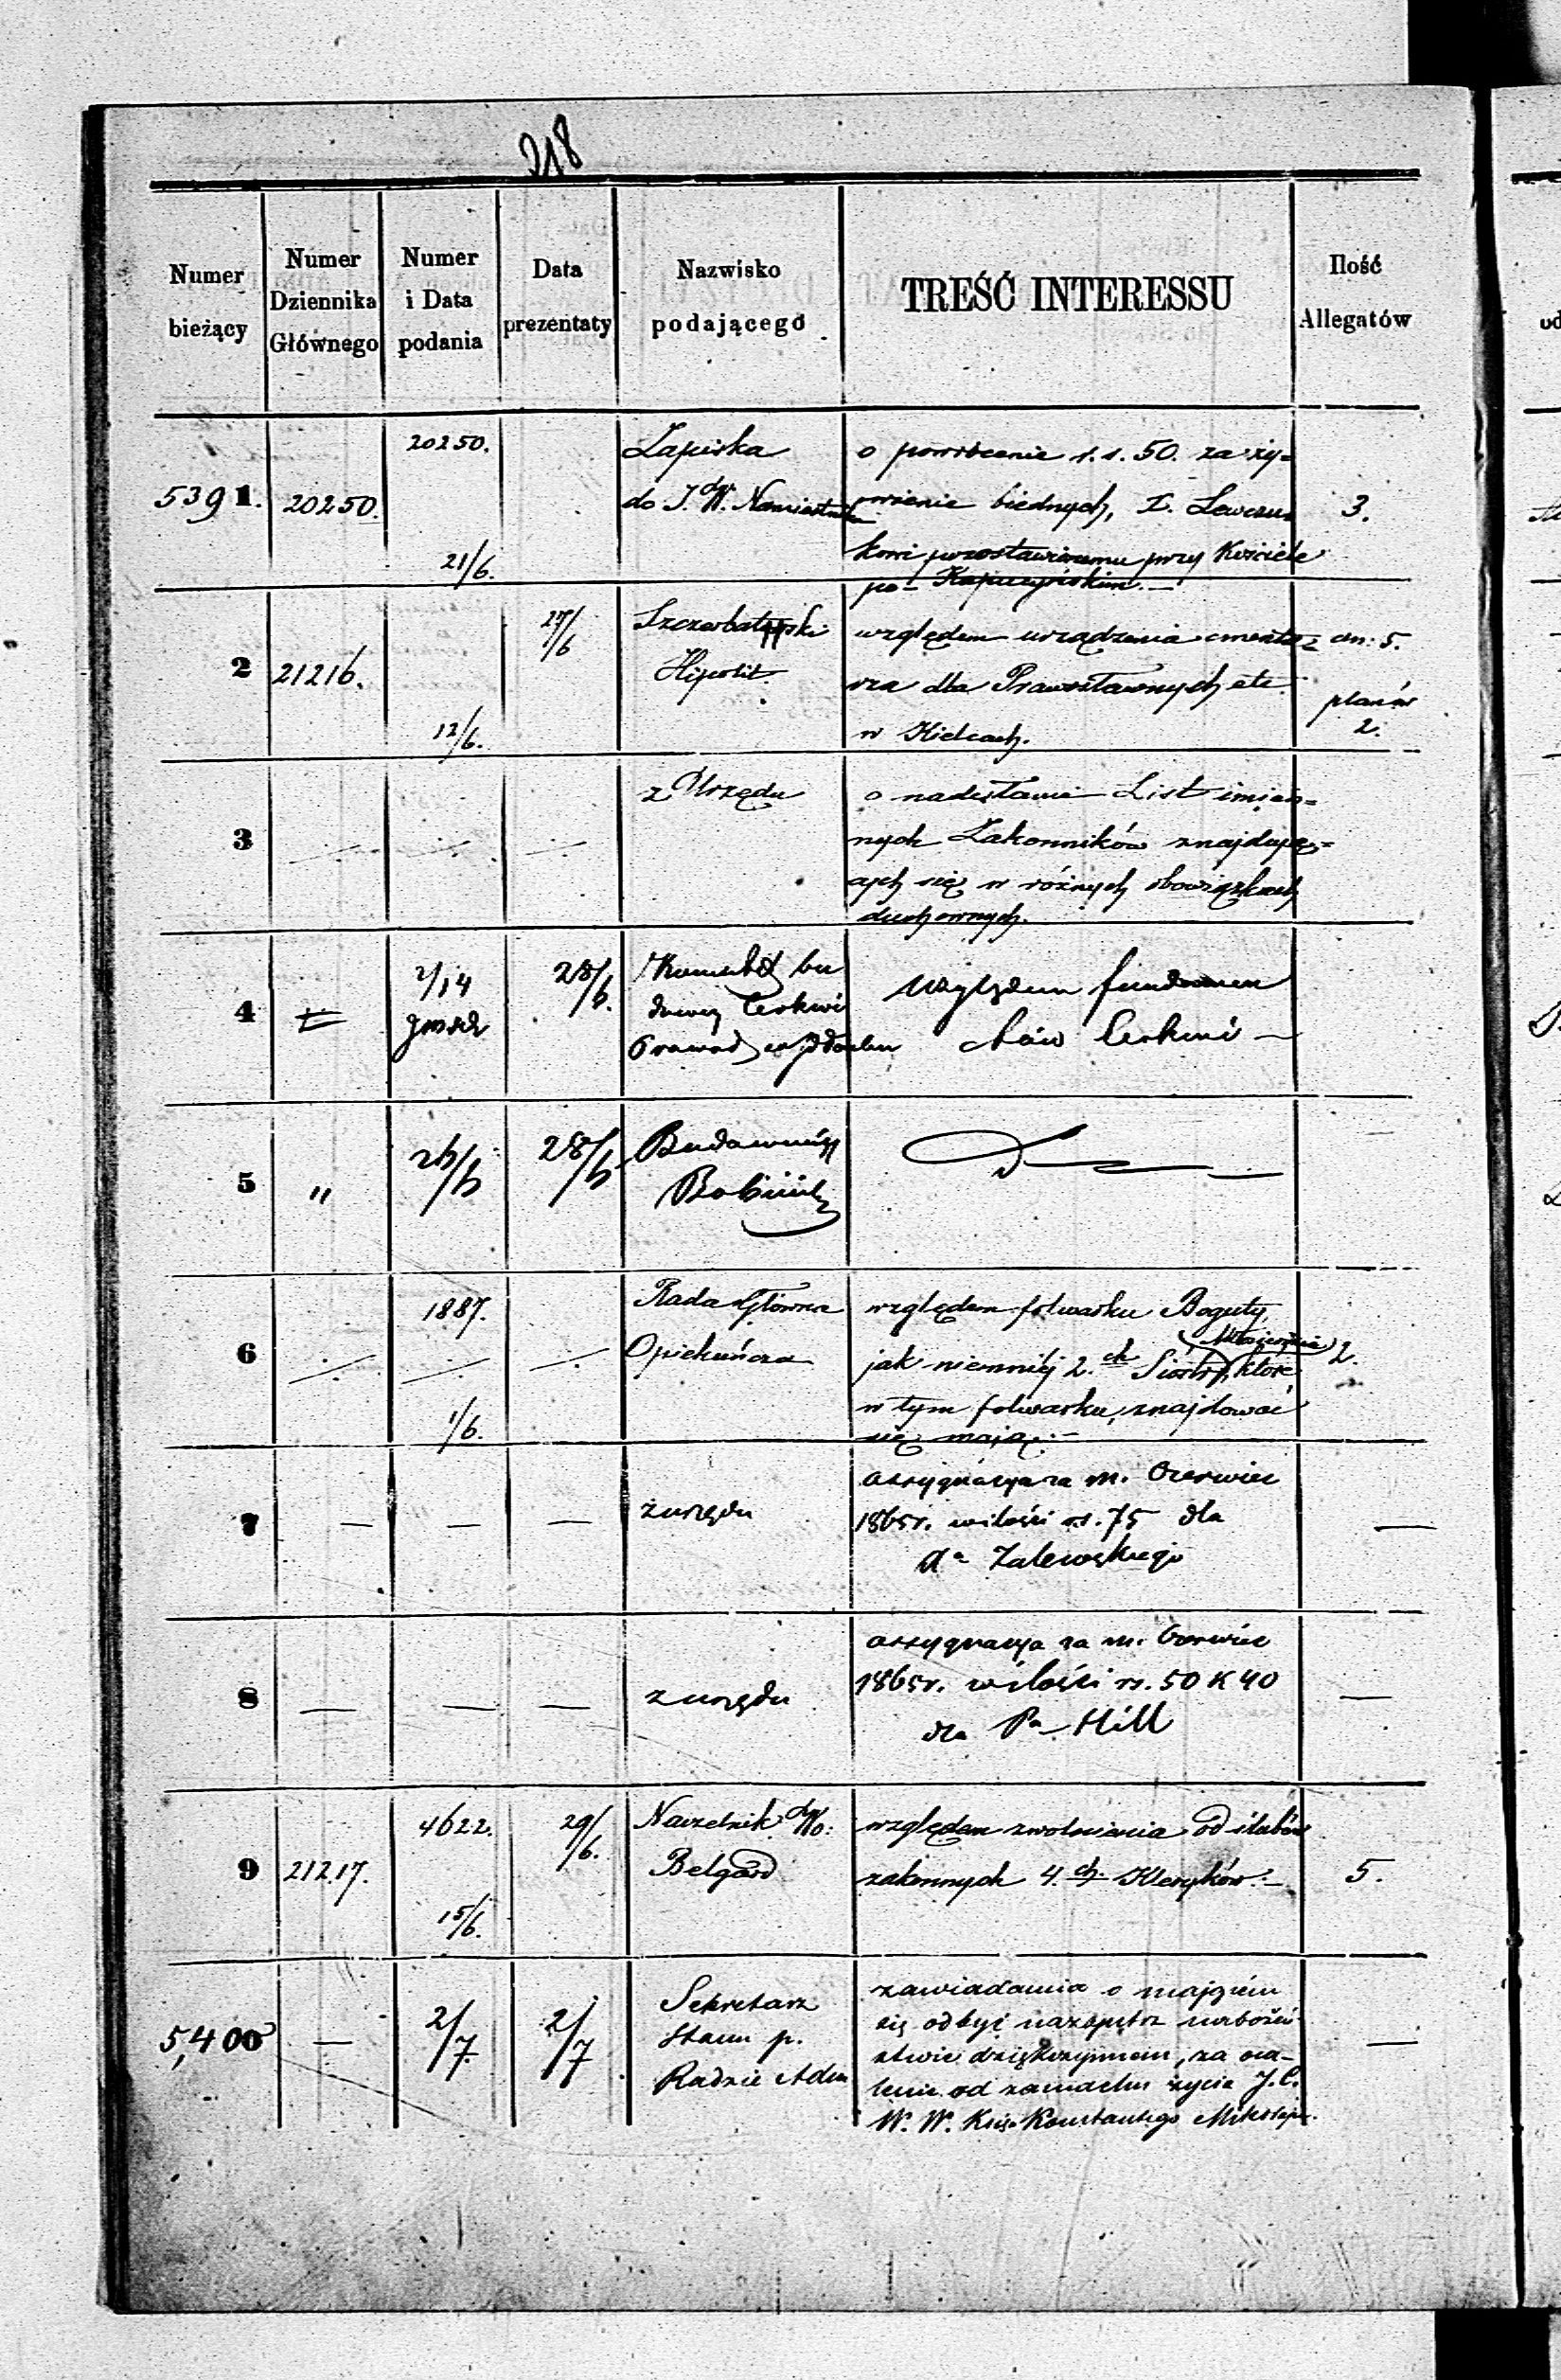 218
Numer bieżący
Numer Dziennika Głównego
Numer i Data podania
Data prezentaty
Nazwisko podającego
TREŚĆ INTERESSU
Ilość Allegatów
5391. 20250. 20250. 21/6.
Zapiska
do J.W. Namiestnika
o powrócenie r.s. 50. za ży=
wienie biednych, X. Lewczu=
kowi pozostawionemu przy Kościele
po- Kapucyńskim.—
3.
2 21216. 12/6. 27/6
Hipolit.
względem urządzenia cmenta=
rza dla Prawosławnych etc.
w Kielcach.
an: 5.
planów
2.
3
z Urzędu
o nadesłanie List imien=
nych Zakonników znajdują=
cych się w różnych obowiązkach
duchownych.
4 2/14 28/6.
Komitet bu
dowy Cerkwi
względem fundamen
tów Cerkwi —
5 " 26/6 28/6
Budowniczy
6 1887. 1/6.
Rada Główna
Opiekuńcza
względem folwarku Boguty,
jak niemniéj 2.ch Sióstr, które
w tym folwarku, znajdować
się mają.—
2.
7 — — —
z urzędu
assygnacya za m. Czerwiec
1865r. w ilości rs. 75 dla
Zalewskiego
—
8 — — —
z urzędu
assygnacya za m. Czerwiec
1865r. w ilości rs. 50 K 40
dla Pa Hill
—
9 21217. 4622. 15/6. 29/6.
Naczelnik Wo:
Belgard
względem zwolnienia od ślubów
zakonnych 4.ch. Kleryków.—
5.
5,400 — 2/7. 2/7
Sekretarz
Stanu p.
Radzie Adm
zawiadamia o mającém
się odbyć nazajutrz nabożeń
stwie dziękczynnem, za oca-
lenie od zamachu życia J.C.
W. W. Księ. Konstantego Mikołaje.
—